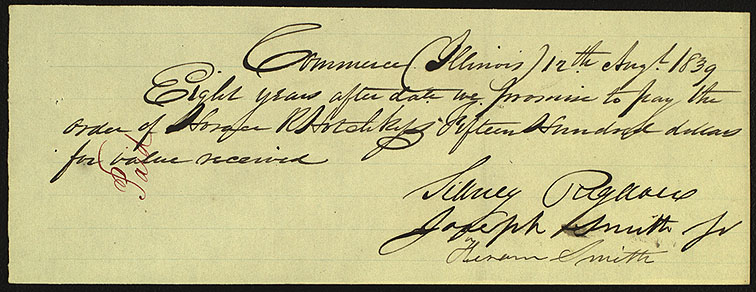 Commerce (Illinois) 12th Augt 1839
Eight years after date we promise to pay the
order of Horace R Hotchkiss Fifteen Hundred dollars
for value received
Paid
Sidney Rigdon
Joseph Smith Jr
Hiram Smith